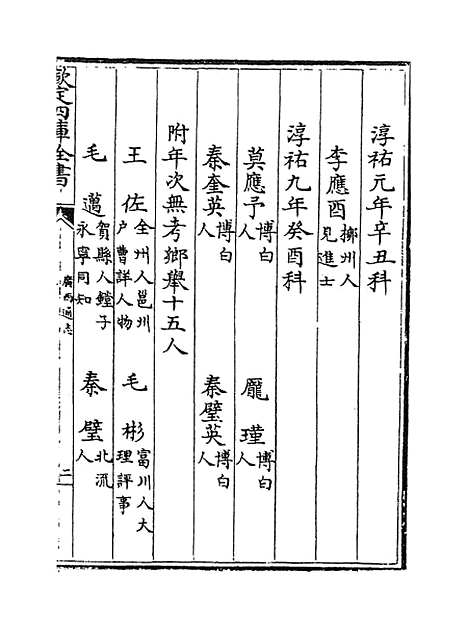 淳祐元年辛丑科
李應酉 桞州人見進士
淳祐九年癸酉科
莫應予 博白人 龎瑾 博白人
秦奎英 博白人 秦璧英 博白人
附年次無考鄉舉十五人
王佐 全州人邕州户曹詳人物 毛彬 富川人大理評事
毛邁 賀縣人鏜子永寧同知 秦璧 北流人
欽定四庫全書 廣西通志 二